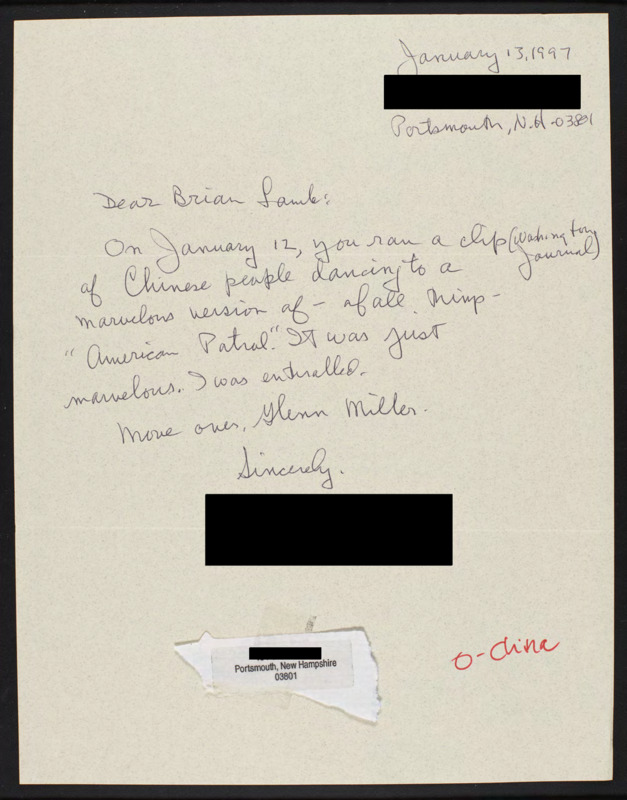 January 13, 1997
Portsmouth, N.H-03801
Dear Brian Lamb:
On January 12, you ran a clip (Washington
Journal)
of Chinese people dancing to a
marvelous version of - of all things -
"American Patrol." It was just
marvelous. I was enthralled.
Move over, Glenn Miller.
Sincerely.
Portsmouth, New Hampshire
03801
O-China